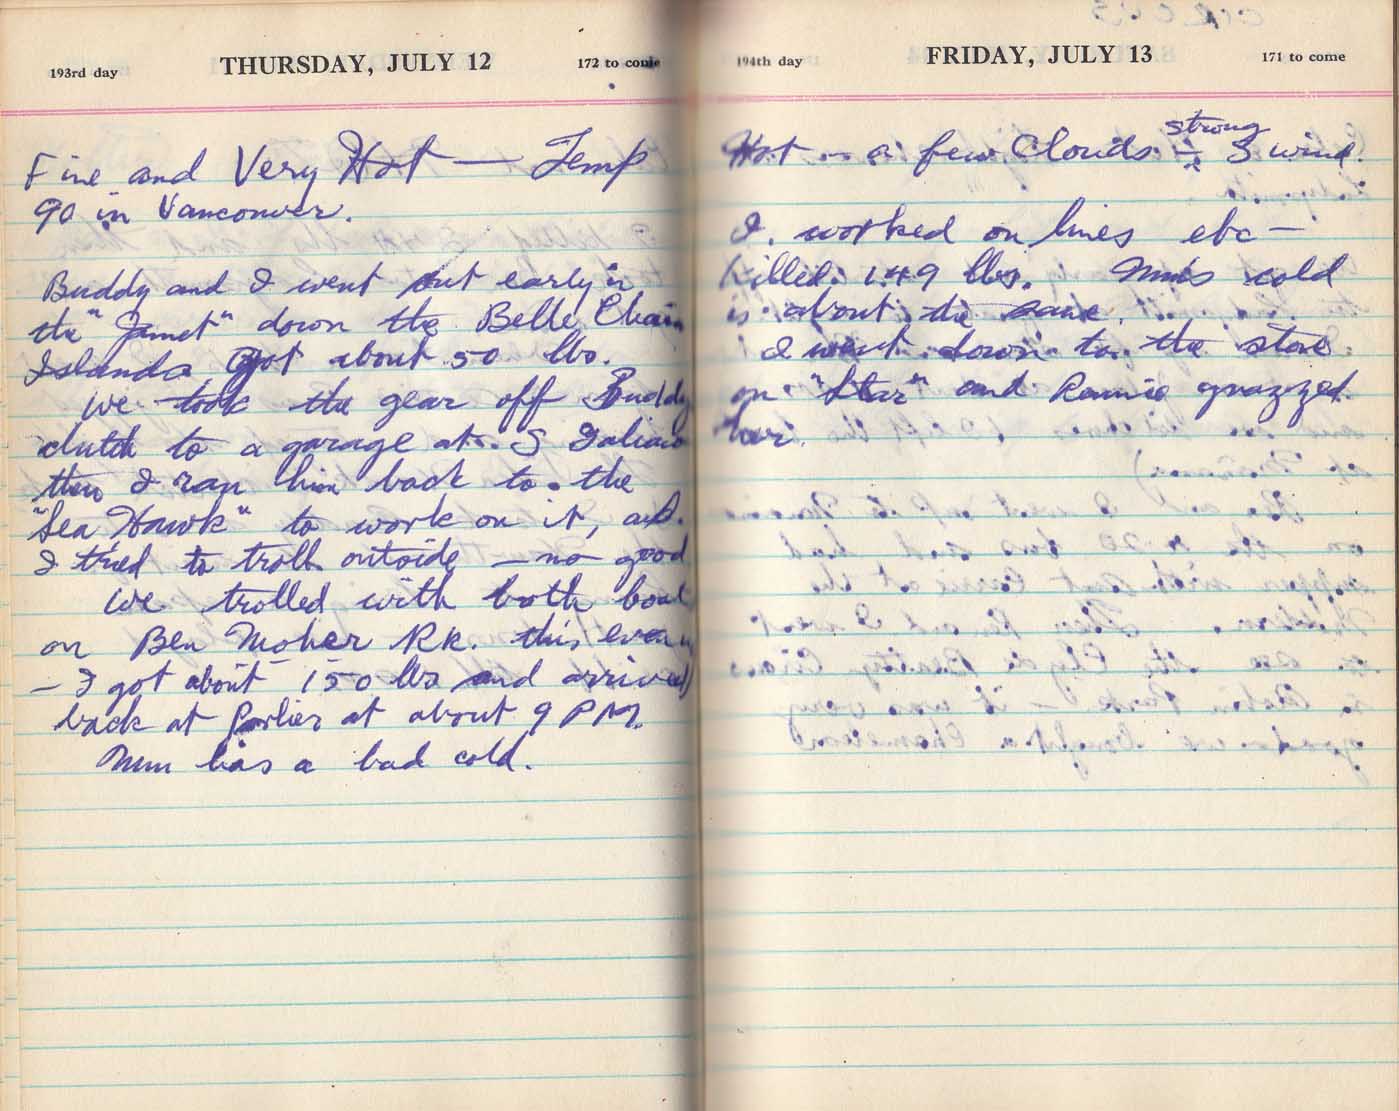 193rd day THURSDAY, JULY 12 172 to come
Fine and Very Hot — Temp
90 in Vancouver.
Buddy and I went out early in
the "Janet" down the Belle Chain
Islands Got about 50 lbs.
We took the gear off Buddy
clutch to a garage at S Galiano
then I ran him back to the
"Sea Hawk" to work on it, and
I tried to troll outside — no good
We trolled with both boat
on Ben Moher Rk. this even
— I got about 150 lbs and arrived
back at Porlier at about 9 PM.
Mum has a bad cold.
194th day FRIDAY, JULY 13 171 to come
Hot - a few Clouds - strong S wind.
I. worked on lines etc —
killed 149 lbs. Mum's cold
is about the same.
I went down to the store
on "Star" and Ramie grazzed
her.